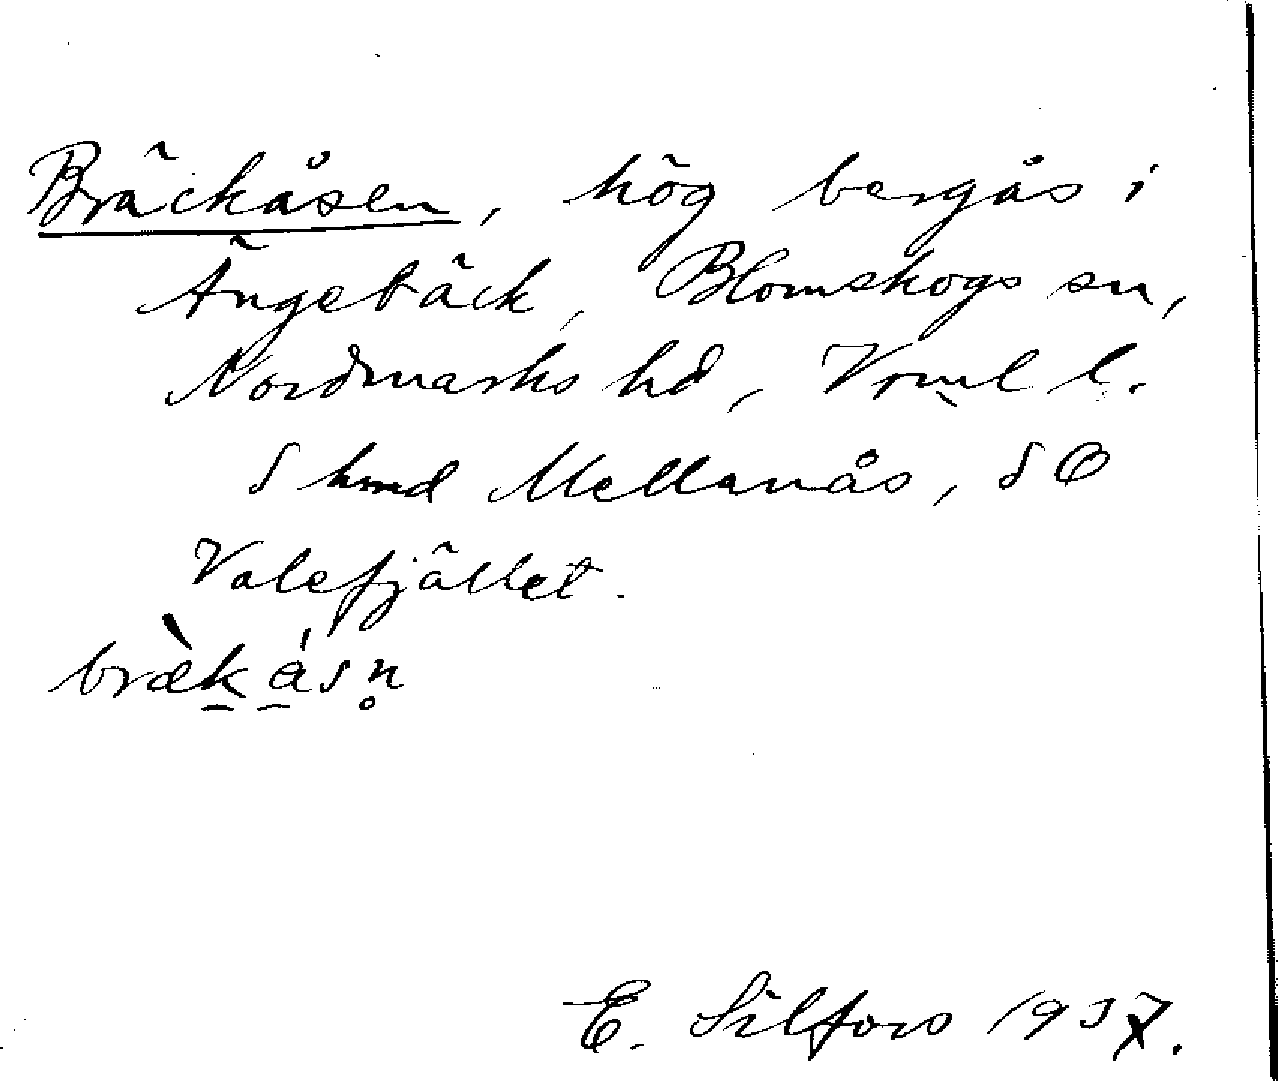 Bräckåsen, hög bergås i
Ängebäck, Blomskogs sn,
Nordmarks hd, Vrml l.
S hmd Mellanås, SO
Valefjället.
bræ̀kåsn̥
E. Silfors 1937.